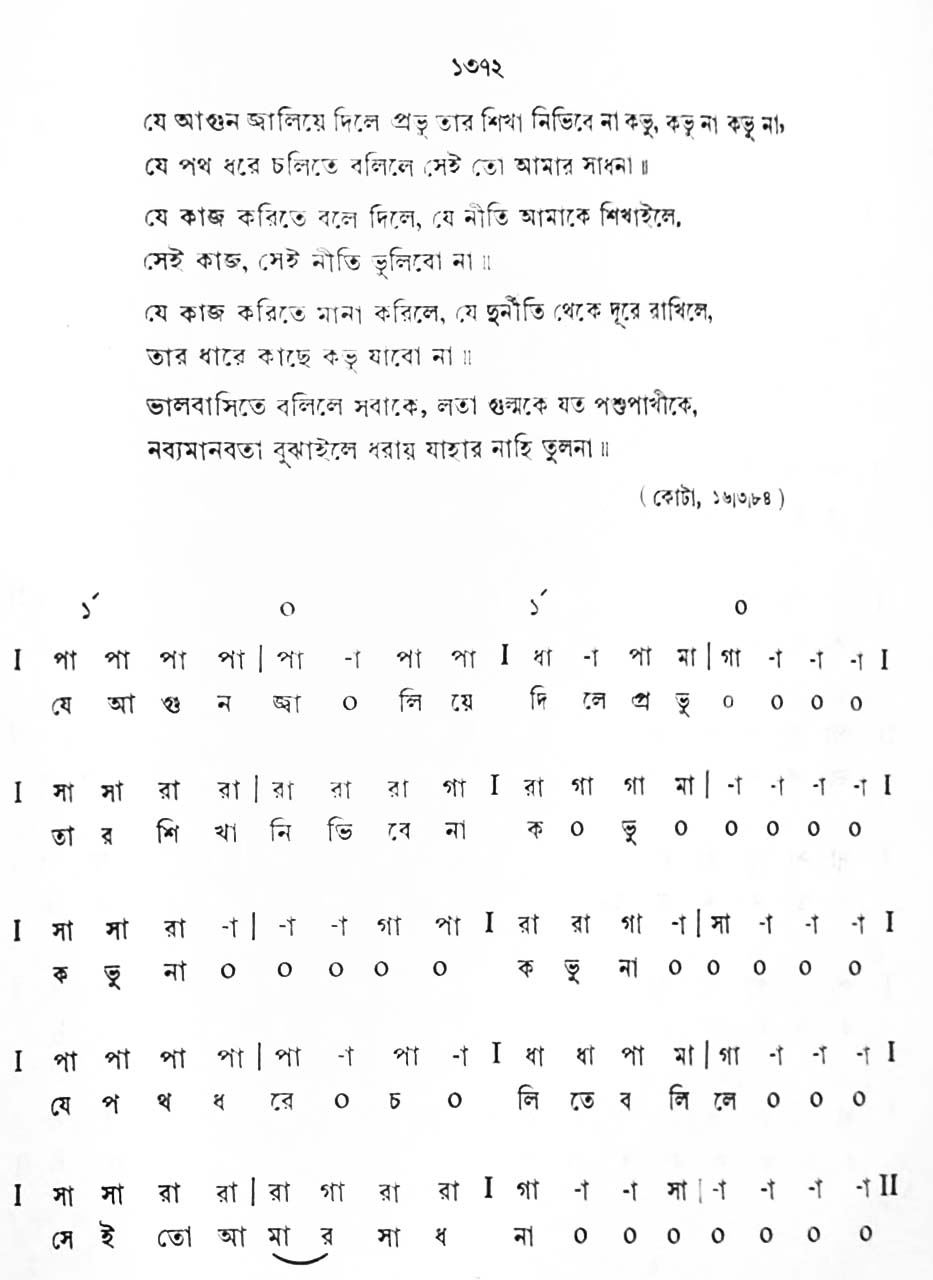 ১৩৭২
যে আগুন জ্বালিয়ে দিলে প্রভু তার শিখা নিভিবে না কভু, কভু না কভু না,
যে পথ ধরে চলিতে বলিলে সেই তো আমার সাধনা॥
যে কাজ করিতে বলে দিলে, যে নীতি আমাকে শিখাইলে,
সেই কাজ, সেই নীতি ভুলিবো না॥
যে কাজ করিতে মানা করিলে, যে দুর্নীতি থেকে দূরে রাখিলে,
তার ধারে কাছে কভু যাবো না॥
ভালবাসিতে বলিলে সবাকে, লতা গুল্মকে যত পশুপাখীকে,
নব্যমানবতা বুঝাইলে ধরায় যাহার নাহি তুলনা॥
( কোটা, ১৬।৩।৮৪ )
১´ ০ ১´ ০
I পা পা পা পা | পা -া পা পা I ধা -া পা মা | গা -া -া -া I
যে আ গু ন জ্বা ০ লি য়ে দি লে প্র ভু ০ ০ ০ ০
I সা সা রা রা | রা রা রা গা I রা গা গা মা | -া -া -া -া I
তা র শি খা নি ভি বে না ক ০ ভু ০ ০ ০ ০ ০
I সা সা রা -া | -া -া গা পা I রা রা গা -া | সা -া -া -া I
ক ভু না ০ ০ ০ ০ ০ ক ভু না ০ ০ ০ ০ ০
I পা পা পা পা | পা -া পা -া I ধা ধা পা মা | গা -া -া -া I
যে প থ ধ রে ০ চ ০ লি তে ব লি লে ০ ০ ০
I সা সা রা রা | রা গা রা রা I গা -া -া সা | -া -া -া -া II
সে ই তো আ মা র সা ধ না ০ ০ ০ ০ ০ ০ ০